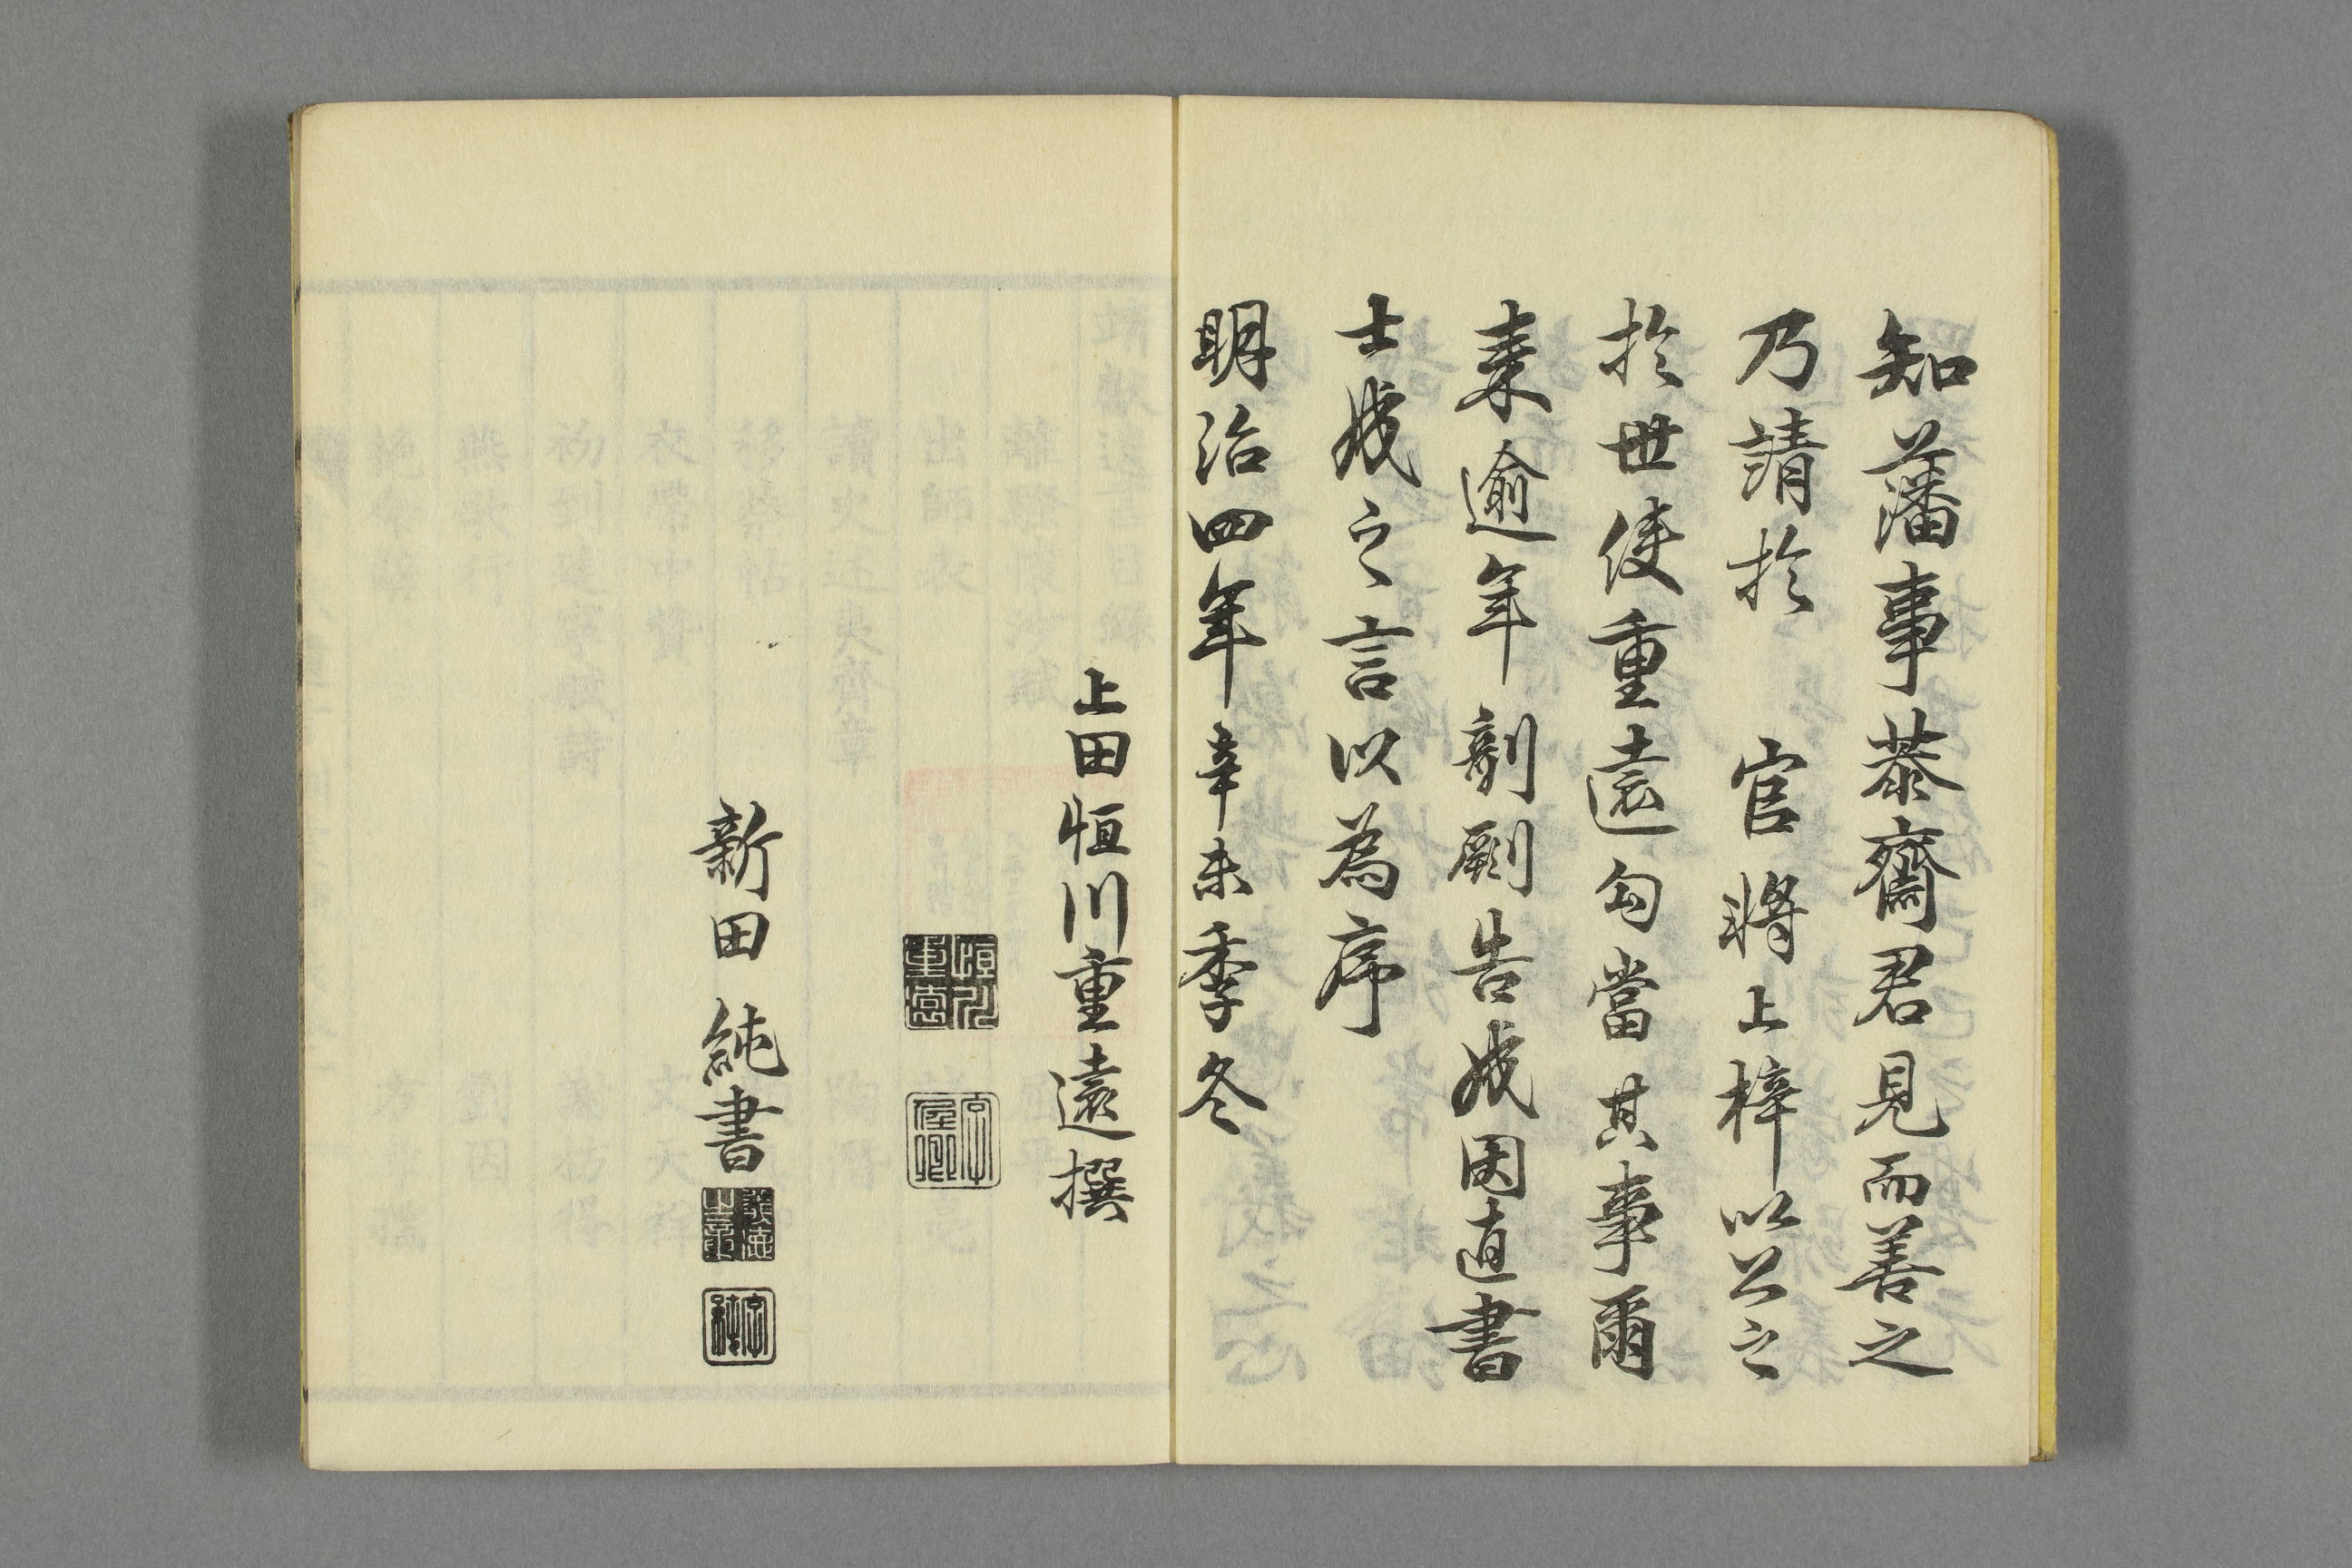 知藩事恭齋君見而善之
乃請於 官將上梓以公之
於世使重遠勾當其事爾
来逾年剞劂告成因直書
士成之言以為序
明治四年辛未季冬
上田恒川重遠撰
恒川重遠
新田 純書